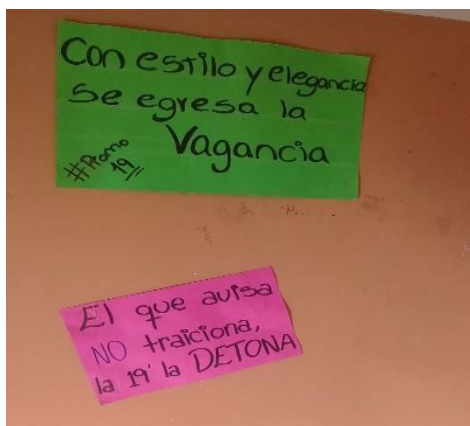 Con estilo y elegancia
se egresa la
Vagancia
#Promo
19//
El que avisa
NO traiciona,
la 19' la DETONA